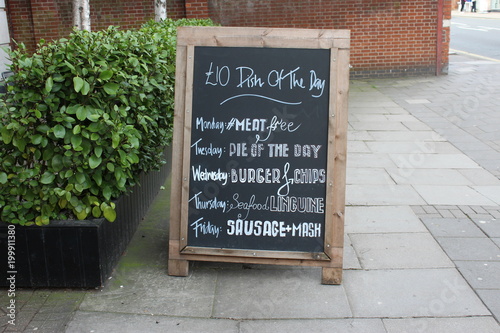 £10 Dish Of The Day
Monday: #MEAT free
Tuesday: PIE OF THE DAY
Wednesday: BURGER & CHIPS
Thursday: Seafood LINGUINE
Friday: SAUSAGE + MASH
199911380